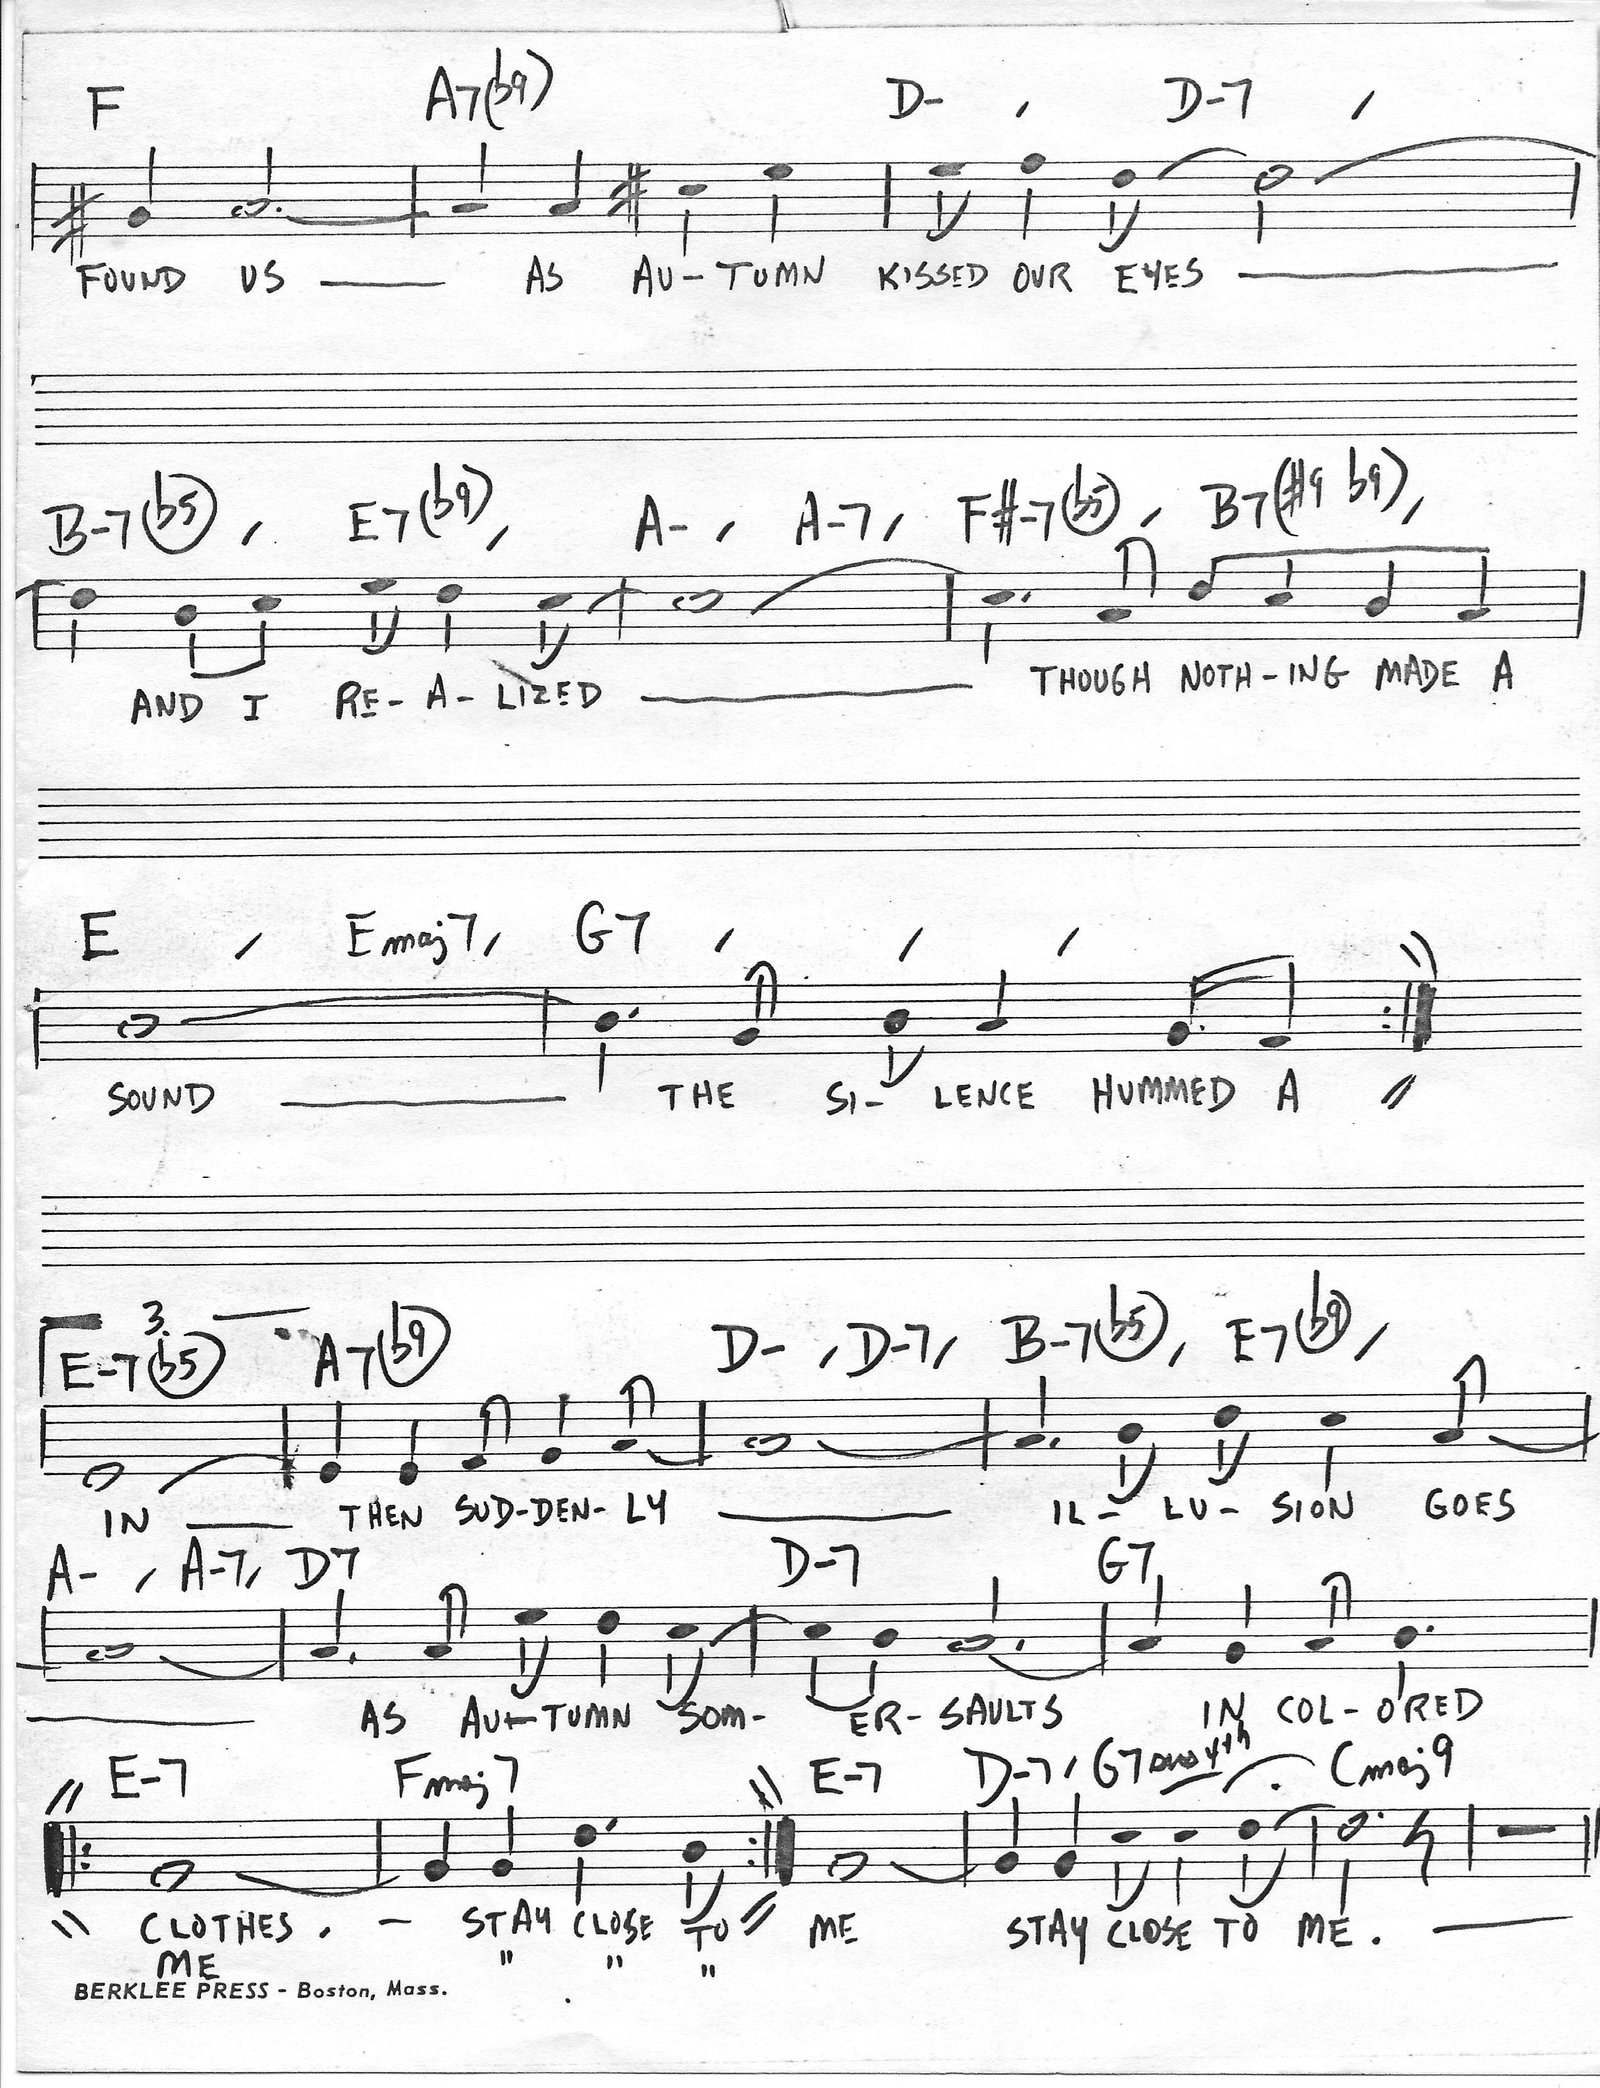 F A7(b9) D- , D-7 ,
FOUND US — AS AU-TUMN KISSED OUR EYES —
B-7(b5) , E7(b9), A- , A-7, F#-7(b5), B7(#9 b9),
AND I RE-A-LIZED — THOUGH NOTH-ING MADE A
E , Emaj7, G7 , , ,
SOUND — THE SI- LENCE HUMMED A //
3.
E-7(b5) A7(b9) D- , D-7, B-7(b5), E7(b9),
IN — THEN SUD-DEN-LY — IL- LU- SION GOES
A- , A-7, D7 D-7 G7,
— AS AU-TUMN SOM- ER-SAULTS IN COL-O'RED
E-7 Fmaj7 E-7 D-7, G7sus4th . Cmaj9
\\ CLOTHES . - STAY CLOSE TO // ME STAY CLOSE TO ME . —
ME " " "
BERKLEE PRESS - Boston, Mass.